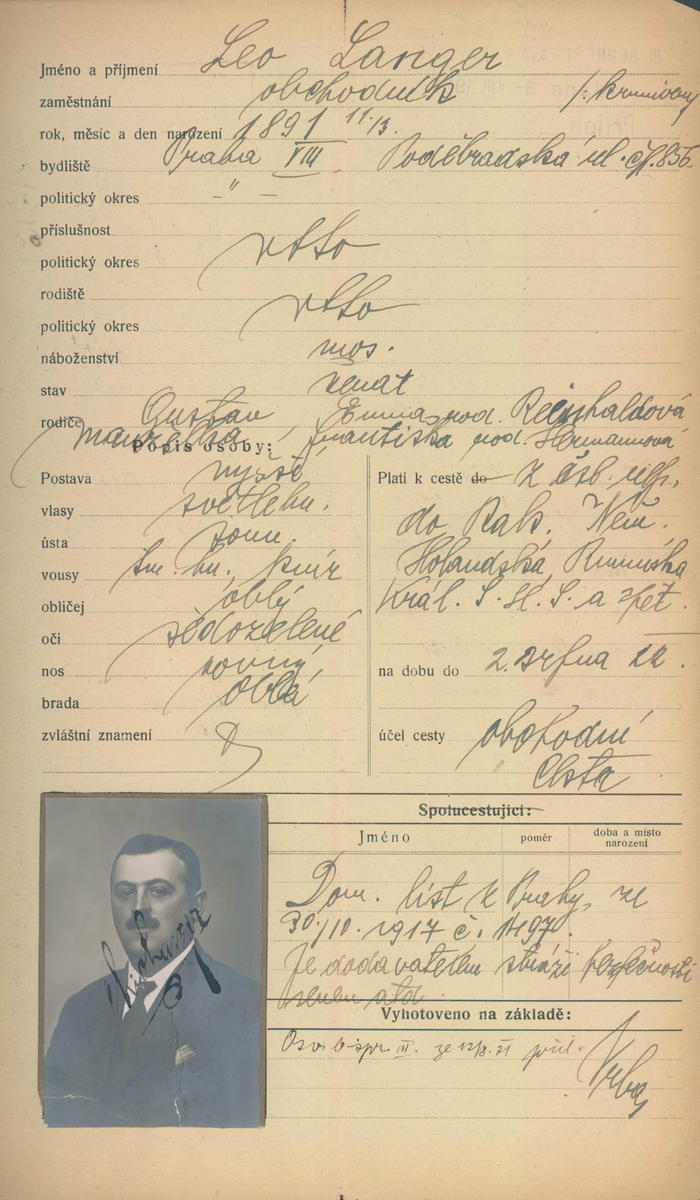 Jméno a příjmení Leo Langer
zaměstnání obchodník /: krmivony
rok, měsíc a den narození 1891 11/3.
bydliště Praha VIII. Poděbradská ul. čp. 856
politický okres – " –
příslušnost
politický okres
rodiště
politický okres
náboženství mos.
stav ženat
rodiče Gustav Emma rod. Reinhaldová
manželka Františka rod. Hermannová
Popis osoby:
Postava vyšší
vlasy světlehn.
ústa soum.
vousy tm. hn. knír
obličej oblý
oči šedozelené
nos rovný
brada oblá
zvláštní znamení
Platí k cestě do z čsb. rep.
do Rak. Něm.
Holandska, Rumuska
Král. S. H. S. a zpět.
na dobu do 2. srpna 22.
účel cesty obchodní
cesta
Spolucestující:
Jméno poměr doba a místo narození
Dom. list z Prahy, ze
30./10. 1917 č.
Je dodavatelem stráže bezpečnosti
atd.
Vyhotoveno na základě:
III. ze 12/8. 21
Vrba
Leo Langer